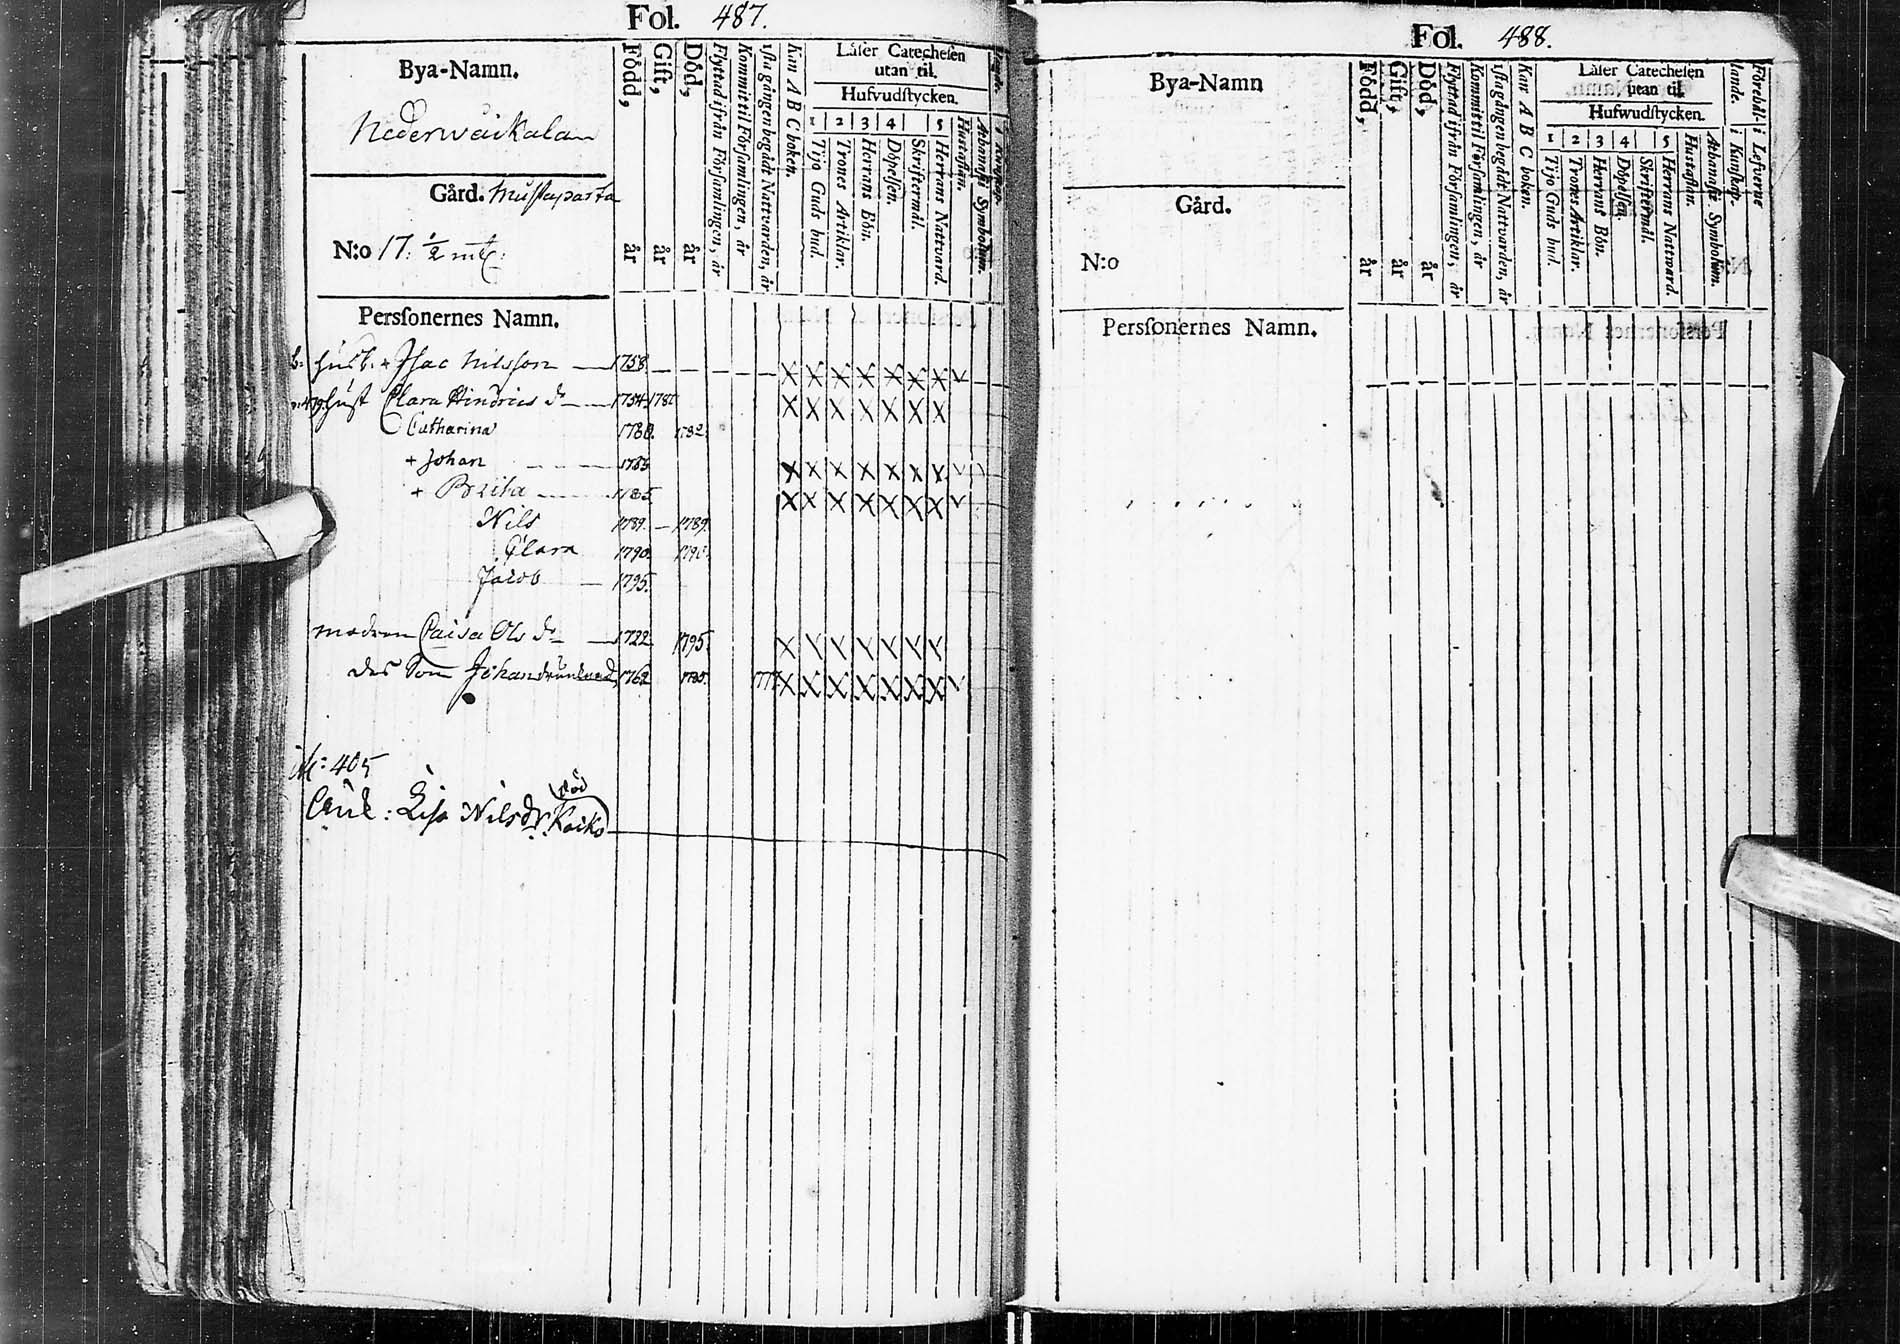 Fol. 487.
Bya-Namn.
Nederweikalan
Gård. Mustaparta
N:o 17. 1/2 mtl:
Persſonernes Namn.
Född, år
Gift, år
Död, år
Flyttad ifrån Församlingen, år
Kommit til Församlingen, år
1sta gången begådt Nattvarden, år
Kan A B C boken.
Läſer Catecheſen
utan til.
Hufvudſtycken.
1 2 3 4 5
Tijo Guds bud.
Trones Artiklar.
Herrans Bön.
Döpelſen.
Skriftermål.
Herrans Nattvard.
Huſtaflan.
Athanaſii Symbolum.
b. husb. + Isac Nilsson 1758.
hust Clara Hindrics dr 1754 178
Catharina 1780. 1782.
+ Johan 1783
+ Brita 1785
Nils 1789. 1789.
Clara 1790. 1790.
Jacob 1795.
modren Caisa Ols dr 1722 1795
des Son Johan drunknad 1762 1785. 177
405
Lisa Nilsdr. Kaiko
död
Fol. 488.
Bya-Namn
Gård.
N:o
Persſonernes Namn.
Född, år
Gift, år
Död, år
Flyttad ifrån Församlingen, år
Kommit til Församlingen, år
1sta gången begådt Nattvarden, år
Kan A B C boken.
Läſer Catecheſen
utan til.
Hufwudſtycken.
1 2 3 4 5
Tijo Guds bud.
Trones Artiklar.
Herrans Bön.
Döpelſen
Skriftermål.
Herrans Natward.
Huſtaflan.
Athanaſii Symbolum.
Förehåll-
lande.
i Kunſkap.
i Lefverne